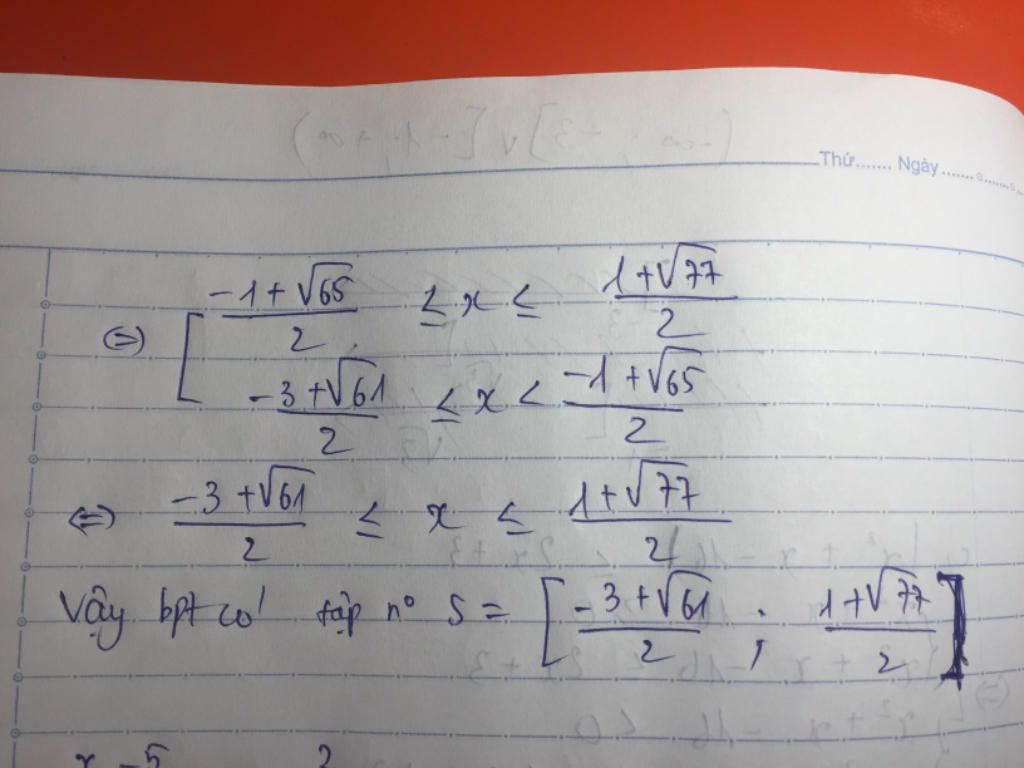 Thứ....... Ngày...............
(=) [ \frac{-1+\sqrt{65}}{2} ≤ x ≤ \frac{1+\sqrt{77}}{2}
\frac{-3+\sqrt{61}}{2} ≤ x < \frac{-1+\sqrt{65}}{2}
(⇔) \frac{-3+\sqrt{61}}{2} ≤ x ≤ \frac{1+\sqrt{77}}{2}
Vậy bpt có tập nº S = [ \frac{-3+\sqrt{61}}{2} ; \frac{1+\sqrt{77}}{2} ]
x - 5 2